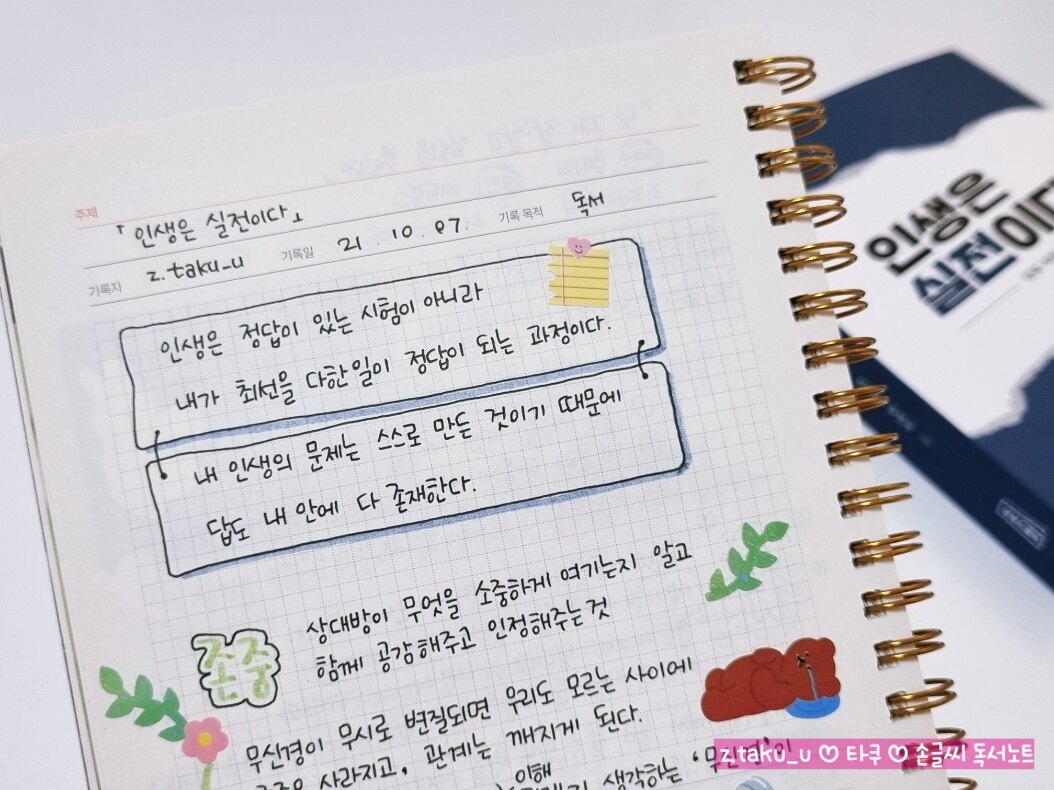 주제 「인생은 실전이다」
기록자 z.taku_u 기록일 21. 10. 07. 기록 목적 독서
인생은 정답이 있는 시험이 아니라
내가 최선을 다한 일이 정답이 되는 과정이다.
내 인생의 문제는 스스로 만든 것이기 때문에
답도 내 안에 다 존재한다.
존중
상대방이 무엇을 소중하게 여기는지 알고
함께 공감해주고 인정해주는 것
무신경이 무시로 변질되면 우리도 모르는 사이에
사라지고, 관계는 깨지게 된다.
이해
생각하는
인생은
실전이다
z.taku_u ♡ 타쿠 ♡ 손글씨 독서노트